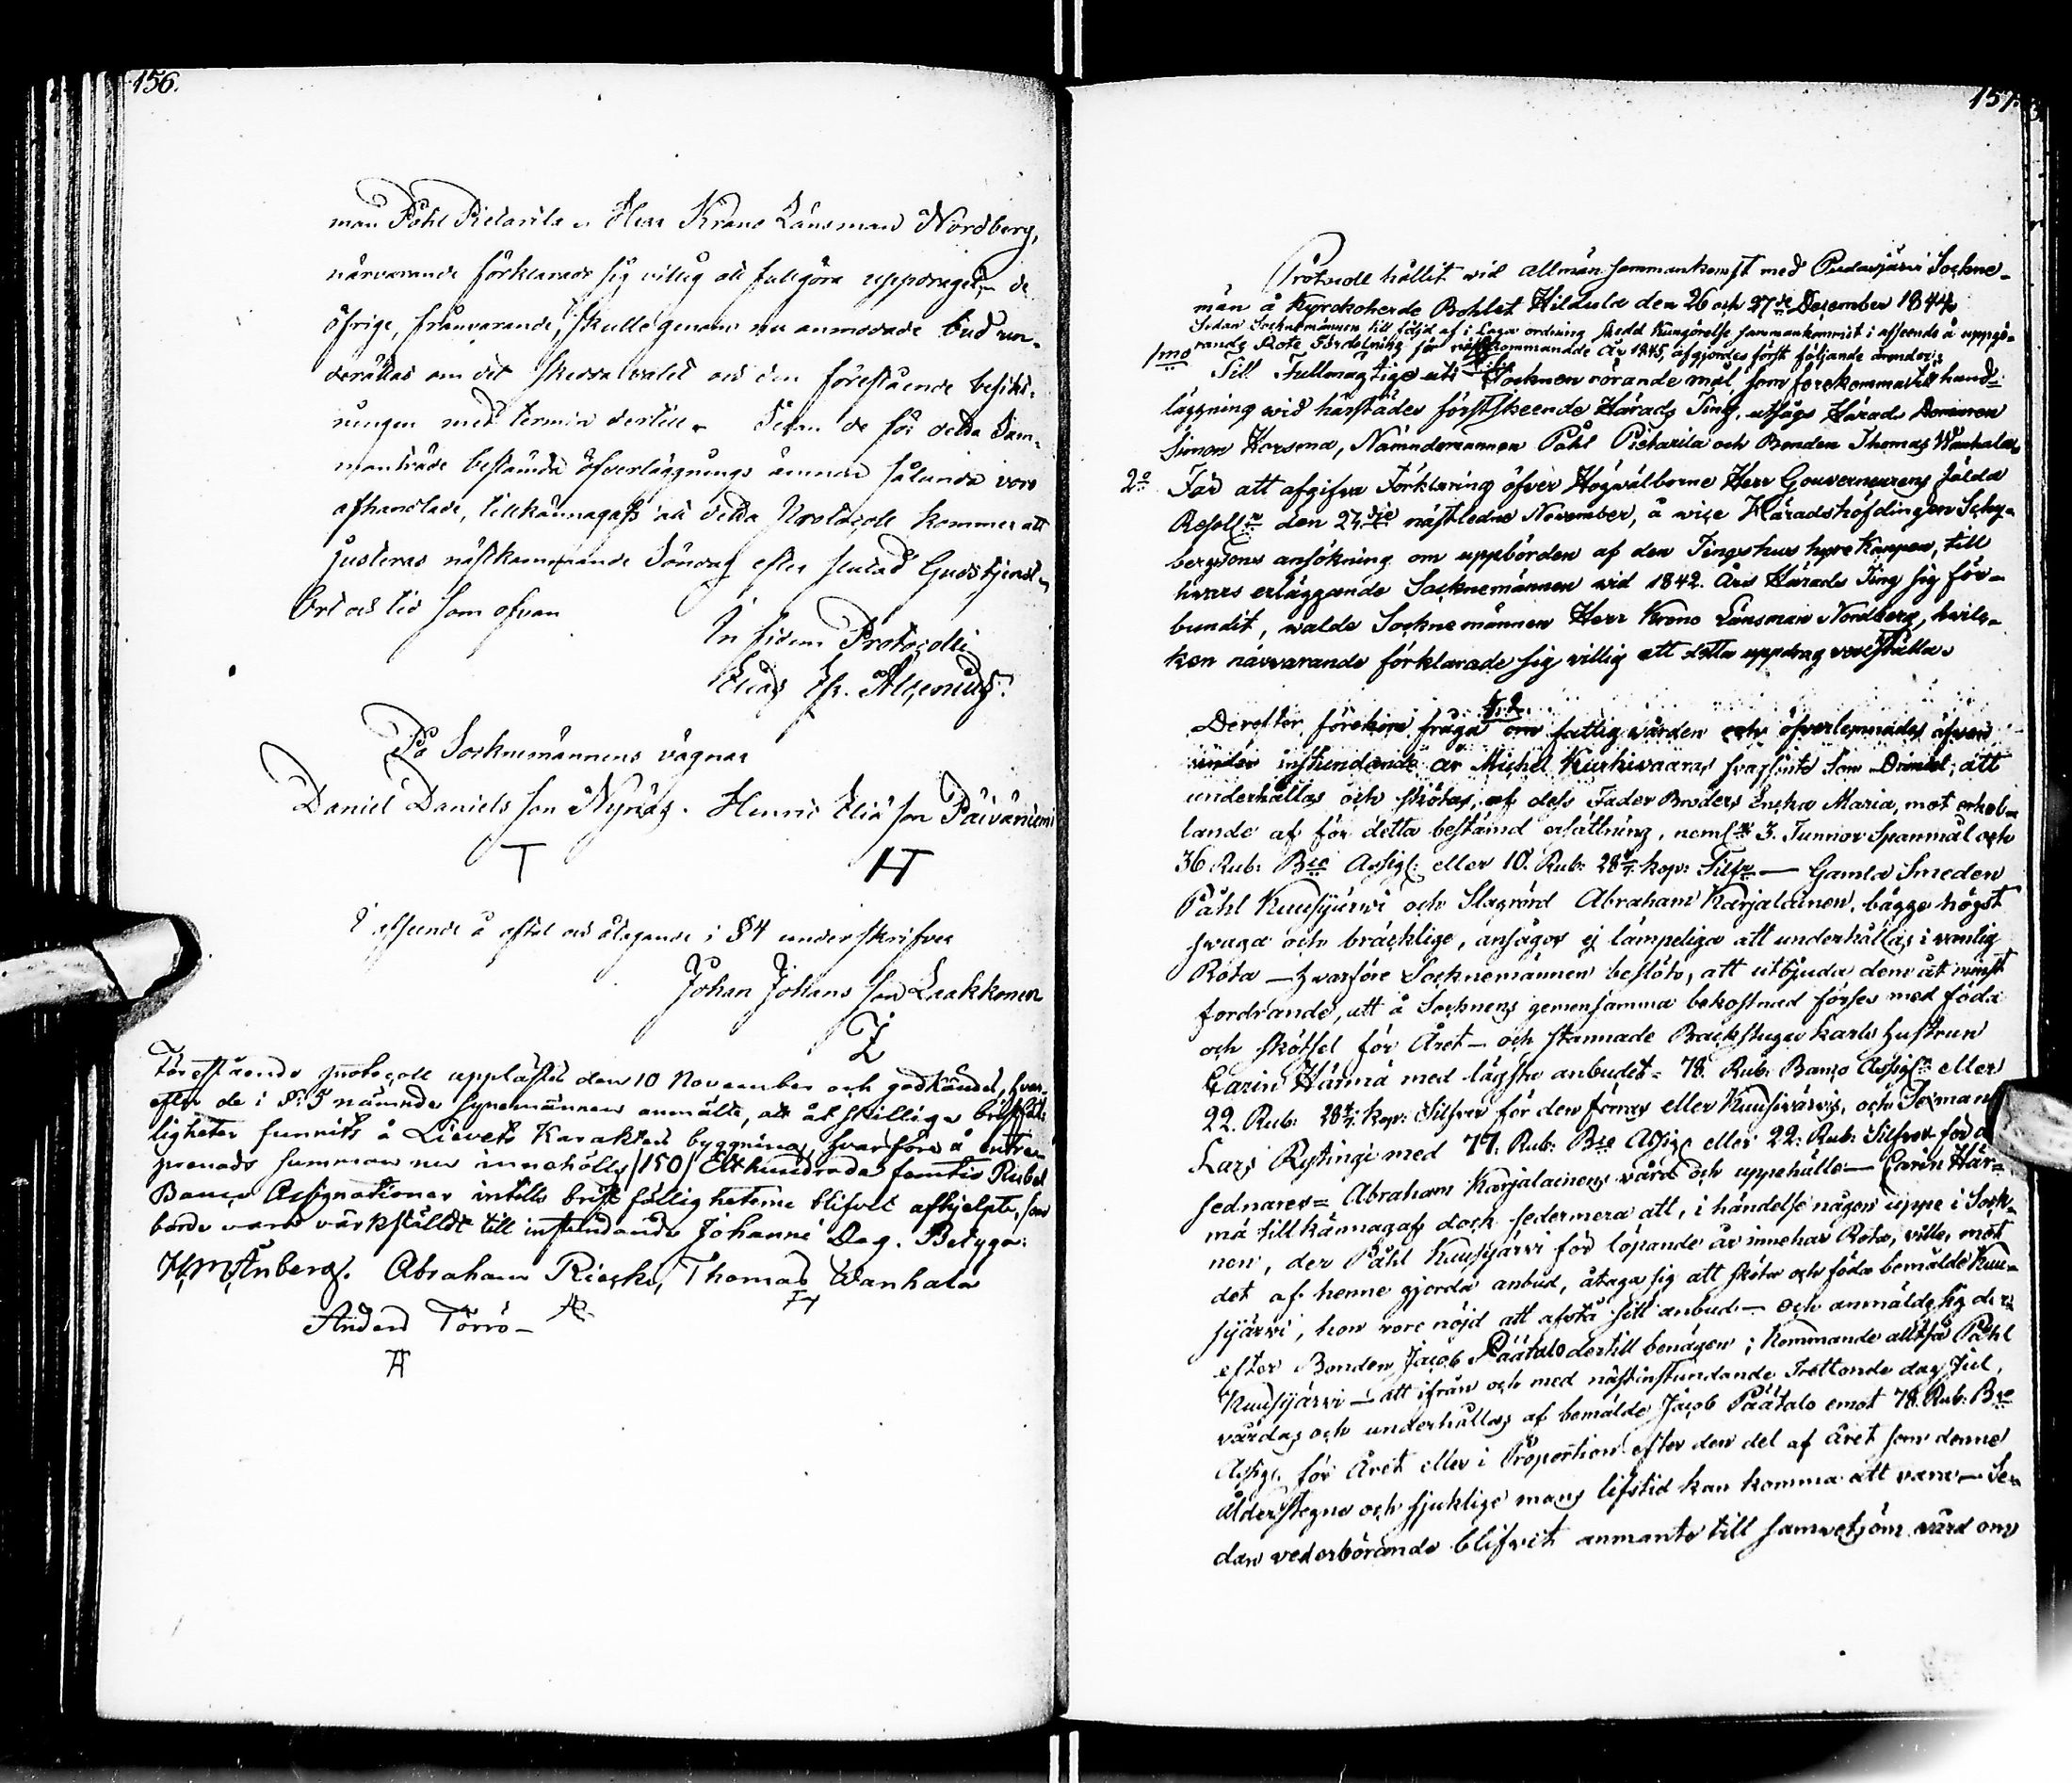 156.
man Påhl Pietarila o. Herr Krono Länsman Nordberg,
närvarande förklarade sig villig att fullgöra uppdraget; de
öfrige, frånvarande, skulle genom nu anmodade bud un-
derättas om det skedda valet och den förestående besikt-
ningen med termin dertill. Sedan de för detta Sam-
manträde bestämda öfverläggnings ämnen sålunda voro
afhandlade, tillkännagafs att detta Protocoll kommer att
justeras nästkommande Söndag efter slutad Gudstjenst.
Ort och tid som ofvan
In fidem Protocolli
Elias Alcenius.
På Socknemännens vägnar
Daniel Daniels son Nyrös. Henric Eliæ son Päiväniemi
T HT
I afseende å aftal och åtagande i § 4 underskrifver
Johan Johans son Laakkonen
Förestående protocoll upplästes den 10 November och godkändes, hvar-
efter de i §. 5 nämnde synemännen anmälte, att åtskillige bristfäl-
ligheter funnits å Lievets Karakters byggning, hvarföre å entre-
prenads summan nu innehölls /150/ Etthundrade femtio Rubel
Banco Assignationer intills bristfälligheterne blifvit afhjelpte, som
borde vara värkstäldt till instundande Johanni Dag. Betyga:
Abraham Riecki, Thomas Wanhala
Anders Törrö
157.
Protocoll hållit vid allmän sammankomst med Pudasjärvi Sockne-
män å Kyrkoherde Bohlet Hildula den 26 och 27de December 1844.
Sedan Socknemännen till följd af i Laga ordning skedd Kungörelse sammankommit i afseende å uppgö-
rande Rote Fördelning för nästkommande År 1845, afgjordes först följande ärender:
1mo Till Fullmägtige uti Socknen rörande mål, som förekomma till hand-
läggning vid härstädes förstskeende Härads Ting, utsågs Härads Domaren
Simon Horsma, Nämndemannen Påhl Pietarila och Bonden Thomas Wanhala.
2o För att afgifva Förklaring öfver Högvälborne Herr Gouverneurens fälda
Resol. den 27de nästledne November, å vice Häradshöfdingen Schy-
bergsons ansökning om uppbörden af den Tingshus hyre Kappen, till
hvars erläggande Socknemännen vid 1842. Års Härads Ting sig för-
bundit, valde Socknemännen Herr Krono Länsman Nordberg, hvil-
ken närvarande förklarade sig villig att detta uppdrag värkställa.
Derefter förekom fråga om fattigvården och öfverlemnades äfven
under instundande år Michel Kurkivaaras svagsinte Son Daniel, att
underhållas och skötas, af dess Fader Broders Encka Maria, mot erhål-
lande af för detta bestämd ersättning, neml. 3. Tunnor Spanmål och
36 Rub: Bco Assig: eller 10. Rub: 28 4/7 kop: Silfr — Gamla Smeden
Påhl Kuusijärvi och Slagrörd Abraham Karjalainen, bägge högst
svaga och bräcklige, ansågos ej lämpeliga att underhållas i vanlig
Rota — hvarföre Socknemännen beslöto, att utbjuda dem åt minst
fordrande, att å Socknens gemensamma bekostnad förses med föda
och skötsel för Året — och stannade Backstugu Karls hustrun
Carin Härmä med lägsta anbudet = 78. Rub. Banco Assig: eller
22. Rub: 28 4/7 kop: Silfver för den förras eller Kuusijärvis, och Sexman
Lars Rytingi med 77. Rub: Bco Assig. eller 22: Rub: Silfver för d
sednares = Abraham Karjalainens vård och uppehälle — Carin Här-
mä tillkännagaf dock sedermera att, i händelse någon uppe i Sock-
nen, der Påhl Kuusijärvi för löpande år innehar Rota, ville, mot
det af henne gjorda anbud, åtaga sig att sköta och föda bemälde Kuu-
sijärvi, hon vore nöjd att afstå sitt anbud — och anmälde sig der-
efter Bonden Jacob Päätalo dertill benägen; kommande alltså Påhl
Kuusijärvi — att ifrån och med nästinstundande Trettonde dag Jul,
vårdas och underhållas af bemälde Jacob Päätalo emot 78. Rub: Bco
Assig. för Året eller i Proportion efter den del af Året som denne
ålderstegne och sjuklige mans lifstid kan komma att vara — Se-
dan vederbörande blifvit anmante till samvetsöm vård om